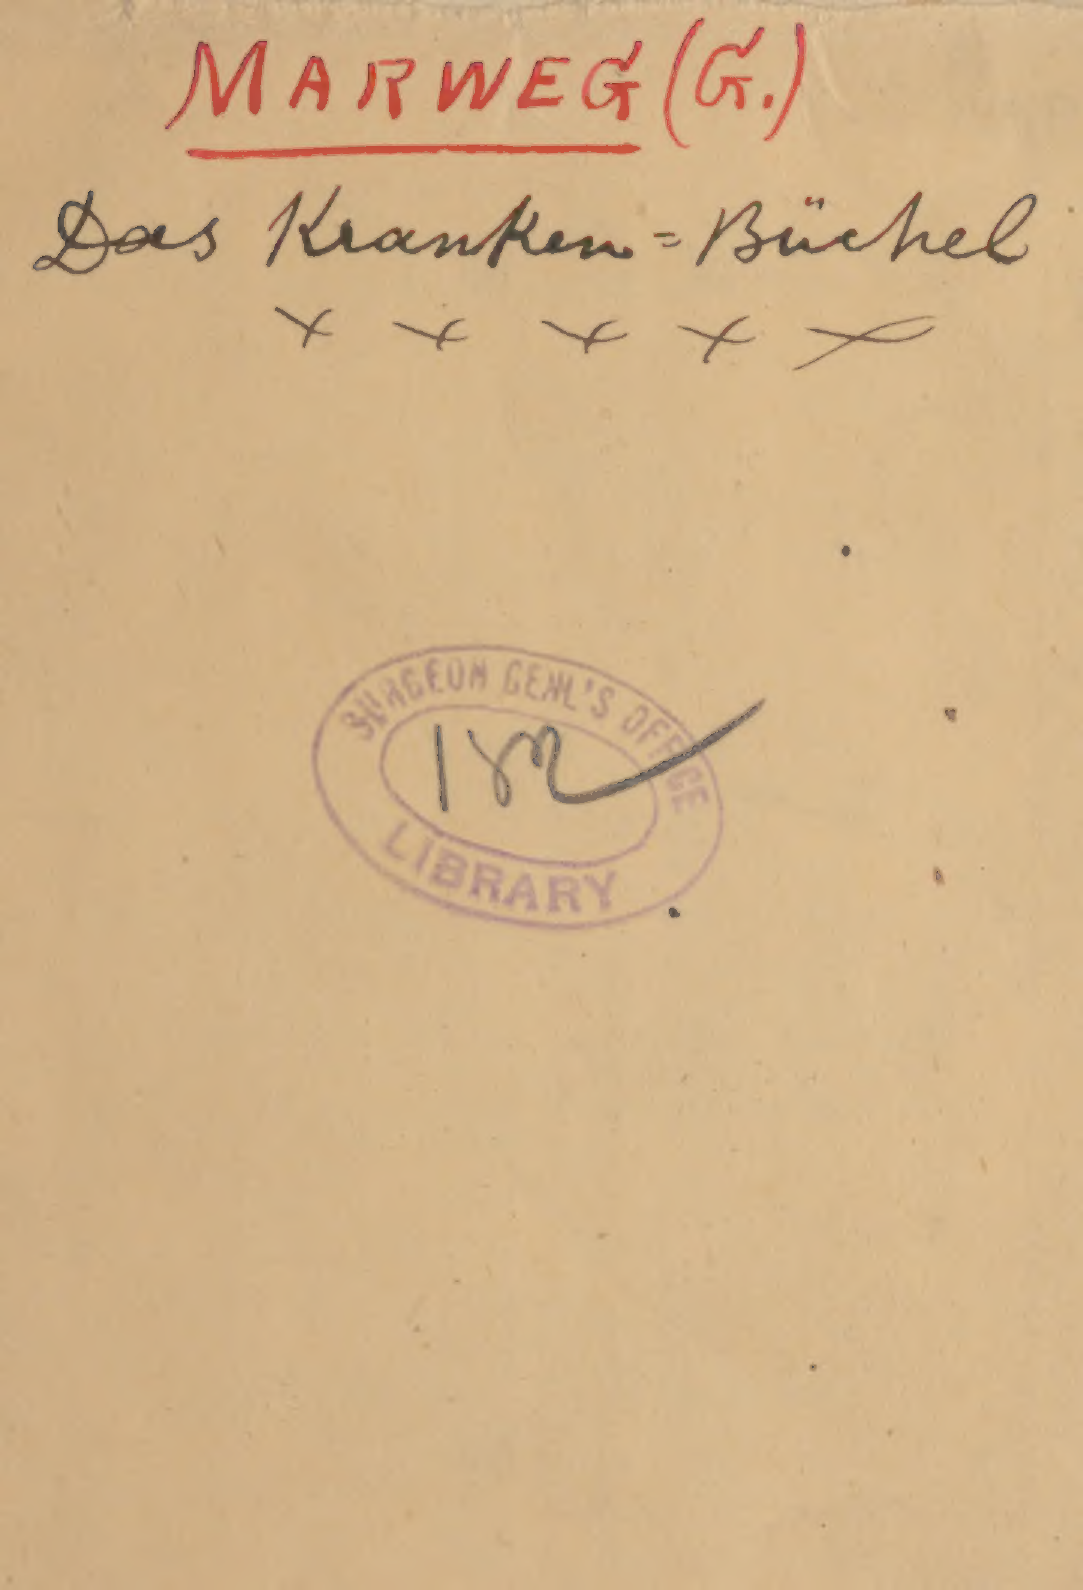 MARWEG (G.)
Das Kranken=Büchel
x x x x x
SURGEON GENL'S OFFICE
LIBRARY